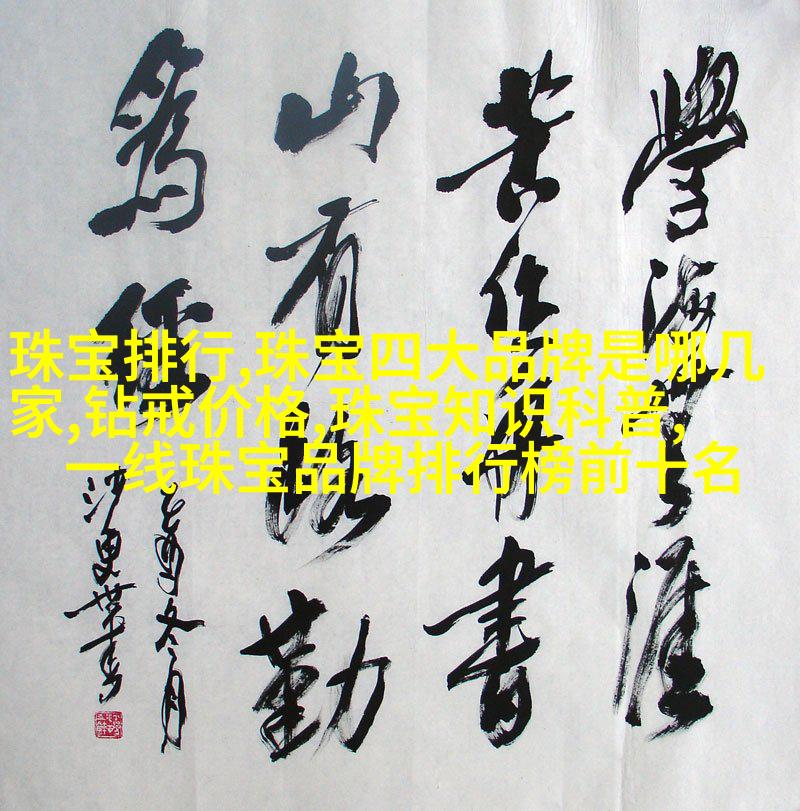 珠宝排行,珠宝四大品牌是哪几
家,钻戒价格,珠宝知识科普,
一线珠宝品牌排行榜前十名
學海無涯
苦作舟書
山有路勤
為徑
乙酉冬月